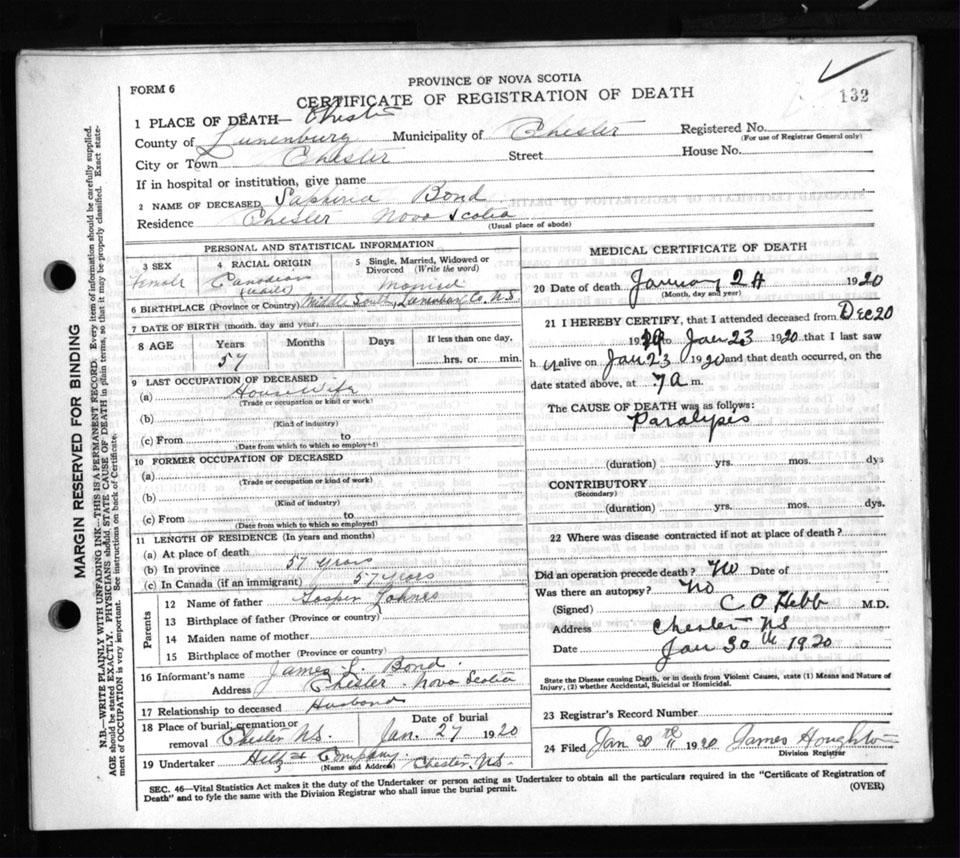 PROVINCE OF NOVA SCOTIA
FORM 6
CERTIFICATE OF REGISTRATION OF DEATH
132
1 PLACE OF DEATH— Chester
County of Lunenburg Municipality of Chester Registered No.
(For use of Registrar General only)
City or Town Chester Street House No.
If in hospital or institution, give name
2 NAME OF DECEASED Saphina Bond
Residence Chester Nova Scotia
(Usual place of abode)
PERSONAL AND STATISTICAL INFORMATION
3 SEX 4 RACIAL ORIGIN 5 Single, Married, Widowed or Divorced (Write the word)
Female Canadian Married
6 BIRTHPLACE (Province or Country) Middle South, Lunenburg Co. N.S
7 DATE OF BIRTH (month, day and year)
8 AGE Years Months Days If less than one day,
57 hrs. or min.
9 LAST OCCUPATION OF DECEASED
(a) Housewife
(Trade or occupation or kind or work)
(b)
(Kind of industry)
(c) From to
(Date from which to which so employed)
10 FORMER OCCUPATION OF DECEASED
(a)
(Trade or occupation or kind of work)
(b)
(Kind of industry)
(c) From to
(Date from which to which so employed)
11 LENGTH OF RESIDENCE (In years and months)
(a) At place of death
(b) In province 57 years
(c) In Canada (if an immigrant) 57 years
Parents
12 Name of father
13 Birthplace of father (Province or country)
14 Maiden name of mother
15 Birthplace of mother (Province or country)
16 Informant's name James L. Bond
Address Chester Nova Scotia
17 Relationship to deceased Husband
18 Place of burial, cremation or removal Chester N.S. Date of burial Jan. 27 1920
19 Undertaker Company, Chester, N.S.
(Name and Address)
MEDICAL CERTIFICATE OF DEATH
20 Date of death January 24 1920
(Month, day and year)
21 I HEREBY CERTIFY, that I attended deceased from Dec 20
1919 to Jan 23 1920 that I last saw
h er alive on Jan 23 1920 and that death occurred, on the
date stated above, at 7 a m.
The CAUSE OF DEATH was as follows:
Paralysis
(duration) yrs. mos. dys
CONTRIBUTORY
(Secondary)
(duration) yrs. mos. dys.
22 Where was disease contracted if not at place of death?
Did an operation precede death? No Date of
Was there an autopsy? No
(Signed) C O Hebb M.D.
Address Chester NS
Date Jan 30th 1920
State the Disease causing Death, or in death from Violent Causes, state (1) Means and Nature of
Injury, (2) whether Accidental, Suicidal or Homicidal.
23 Registrar's Record Number
24 Filed Jan 30th 1920 James Houghton
Division Registrar
SEC. 46—Vital Statistics Act makes it the duty of the Undertaker or person acting as Undertaker to obtain all the particulars required in the "Certificate of Registration of
Death" and to fyle the same with the Division Registrar who shall issue the burial permit.
(OVER)
MARGIN RESERVED FOR BINDING
N.B.—WRITE PLAINLY WITH UNFADING INK—THIS IS A PERMANENT RECORD. Every item of information should be carefully supplied.
AGE should be stated EXACTLY. PHYSICIANS should STATE CAUSE OF DEATH in plain terms, so that it may be properly classified. Exact statement
of OCCUPATION is very important. See instructions on back of Certificate.